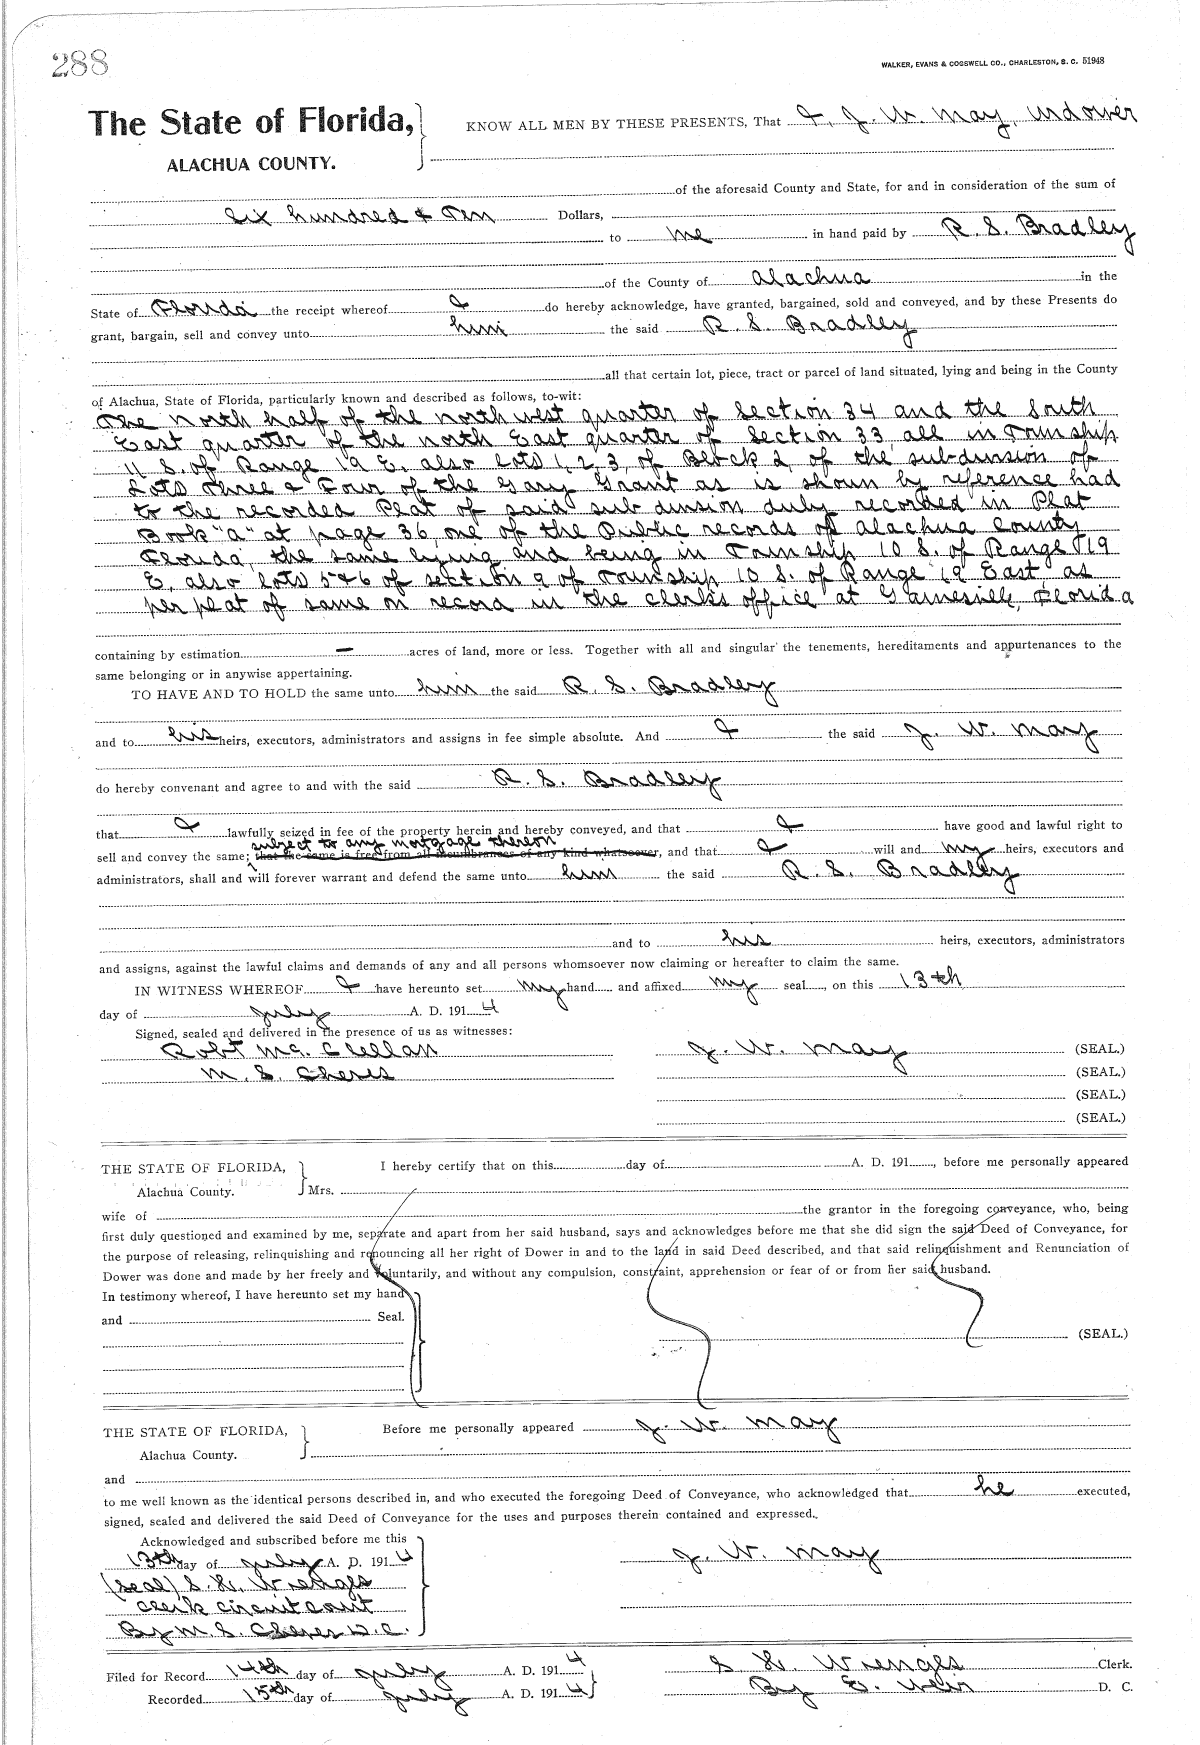 288
WALKER, EVANS & COGSWELL CO., CHARLESTON, S. C. 51948
The State of Florida,
ALACHUA COUNTY.
KNOW ALL MEN BY THESE PRESENTS, That I, J. W. May, widower
of the aforesaid County and State, for and in consideration of the sum of
Six hundred & Ten Dollars,
to me in hand paid by R. S. Bradley
of the County of Alachua in the
State of Florida the receipt whereof I do hereby acknowledge, have granted, bargained, sold and conveyed, and by these Presents do
grant, bargain, sell and convey unto him the said R. S. Bradley
all that certain lot, piece, tract or parcel of land situated, lying and being in the County
of Alachua, State of Florida, particularly known and described as follows, to-wit:
The north half of the north west quarter of Section 34 and the South
East quarter of the north East quarter of Section 33, all in Township
11 S. of Range 19 E. also Lots 1, 2, 3, of Block 2, of the subdivision of
Lots Three & Four of the Gary Grant as is shown by reference had
to the recorded Plat of said sub division duly recorded in Plat
Book "a" at page 36, one of the Public records of Alachua County
Florida, the same lying and being in Township 10 S. of Range 19
E, also lots 5 & 6 of section 9 of Township 10 S. of Range 19 East, as
per plat of same on record in the clerk's office at Gainesville, Florida
containing by estimation — acres of land, more or less. Together with all and singular the tenements, hereditaments and appurtenances to the
same belonging or in anywise appertaining.
TO HAVE AND TO HOLD the same unto him the said R. S. Bradley
and to his heirs, executors, administrators and assigns in fee simple absolute. And I the said J. W. May
do hereby convenant and agree to and with the said R. S. Bradley
that I lawfully seized in fee of the property herein and hereby conveyed, and that I have good and lawful right to
subject to any mortgage thereon
sell and convey the same; that the same is free from all incumbrances of any kind whatsoever, and that I will and my heirs, executors and
administrators, shall and will forever warrant and defend the same unto him the said R. S. Bradley
and to his heirs, executors, administrators
and assigns, against the lawful claims and demands of any and all persons whomsoever now claiming or hereafter to claim the same.
IN WITNESS WHEREOF I have hereunto set my hand and affixed my seal, on this 13th
day of July A. D. 1914
Signed, sealed and delivered in the presence of us as witnesses:
Robt Mc. Clellan J. W. May (SEAL.)
M. S. Cheves (SEAL.)
(SEAL.)
(SEAL.)
THE STATE OF FLORIDA,
Alachua County.
I hereby certify that on this day of A. D. 191 , before me personally appeared
Mrs.
wife of the grantor in the foregoing conveyance, who, being
first duly questioned and examined by me, separate and apart from her said husband, says and acknowledges before me that she did sign the said Deed of Conveyance, for
the purpose of releasing, relinquishing and renouncing all her right of Dower in and to the land in said Deed described, and that said relinquishment and Renunciation of
Dower was done and made by her freely and voluntarily, and without any compulsion, constraint, apprehension or fear of or from her said husband.
In testimony whereof, I have hereunto set my hand
and Seal.
(SEAL.)
THE STATE OF FLORIDA,
Alachua County.
Before me personally appeared J. W. May
and
to me well known as the identical persons described in, and who executed the foregoing Deed of Conveyance, who acknowledged that he executed,
signed, sealed and delivered the said Deed of Conveyance for the uses and purposes therein contained and expressed.
Acknowledged and subscribed before me this
13th day of July A. D. 1914
J. W. May
(Seal) S. H. Wienges
Clerk Circuit Court
By M. S. Cheves D. C.
Filed for Record 14th day of July A. D. 1914 S. H. Wienges Clerk.
Recorded 15th day of July A. D. 1914 By E. Weir D. C.